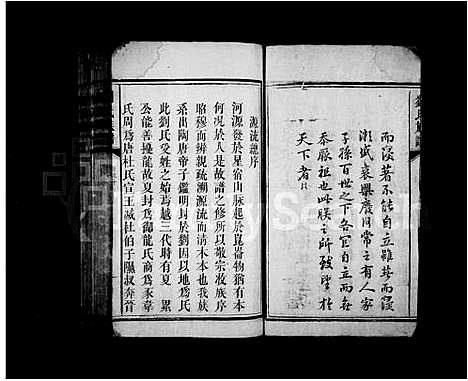 而寖著不能自立雖甚而寖
漸盛衰興廢同常之有人家
子孫百世之下各宜自立而無
忝厥祖也此朕之所致望於
天下者
源流總序
河源發於星宿山脉起於崑崙物猶有本
何况於人是故譜之修所以敬宗收族序
昭穆而辨親疏溯源流而清木本也我族
系出陶唐帝子鑑明封於劉因以地爲氏
此劉氏受姓之始焉越三代時有夏 累
公能善擾龍故夏封爲御龍氏商爲豕韋
氏周爲唐杜氏宣王滅杜伯子隰叔奔晉